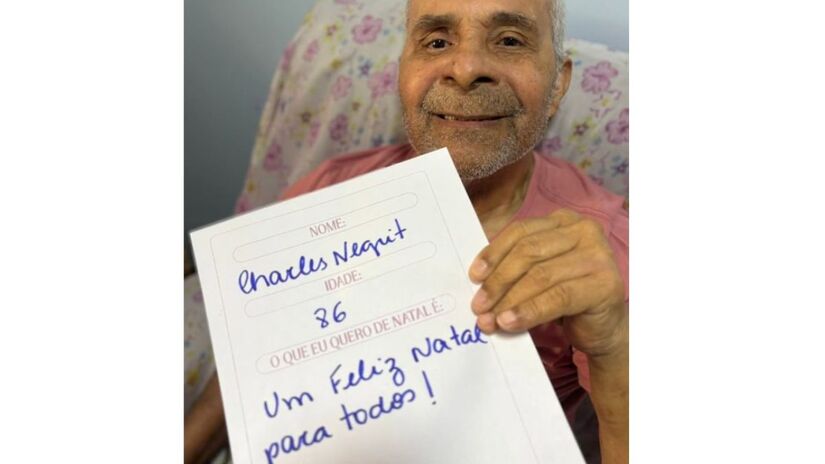 NOME:
Charles Negrit
IDADE:
86
O QUE EU QUERO DE NATAL É:
Um Feliz Natal
para todos!